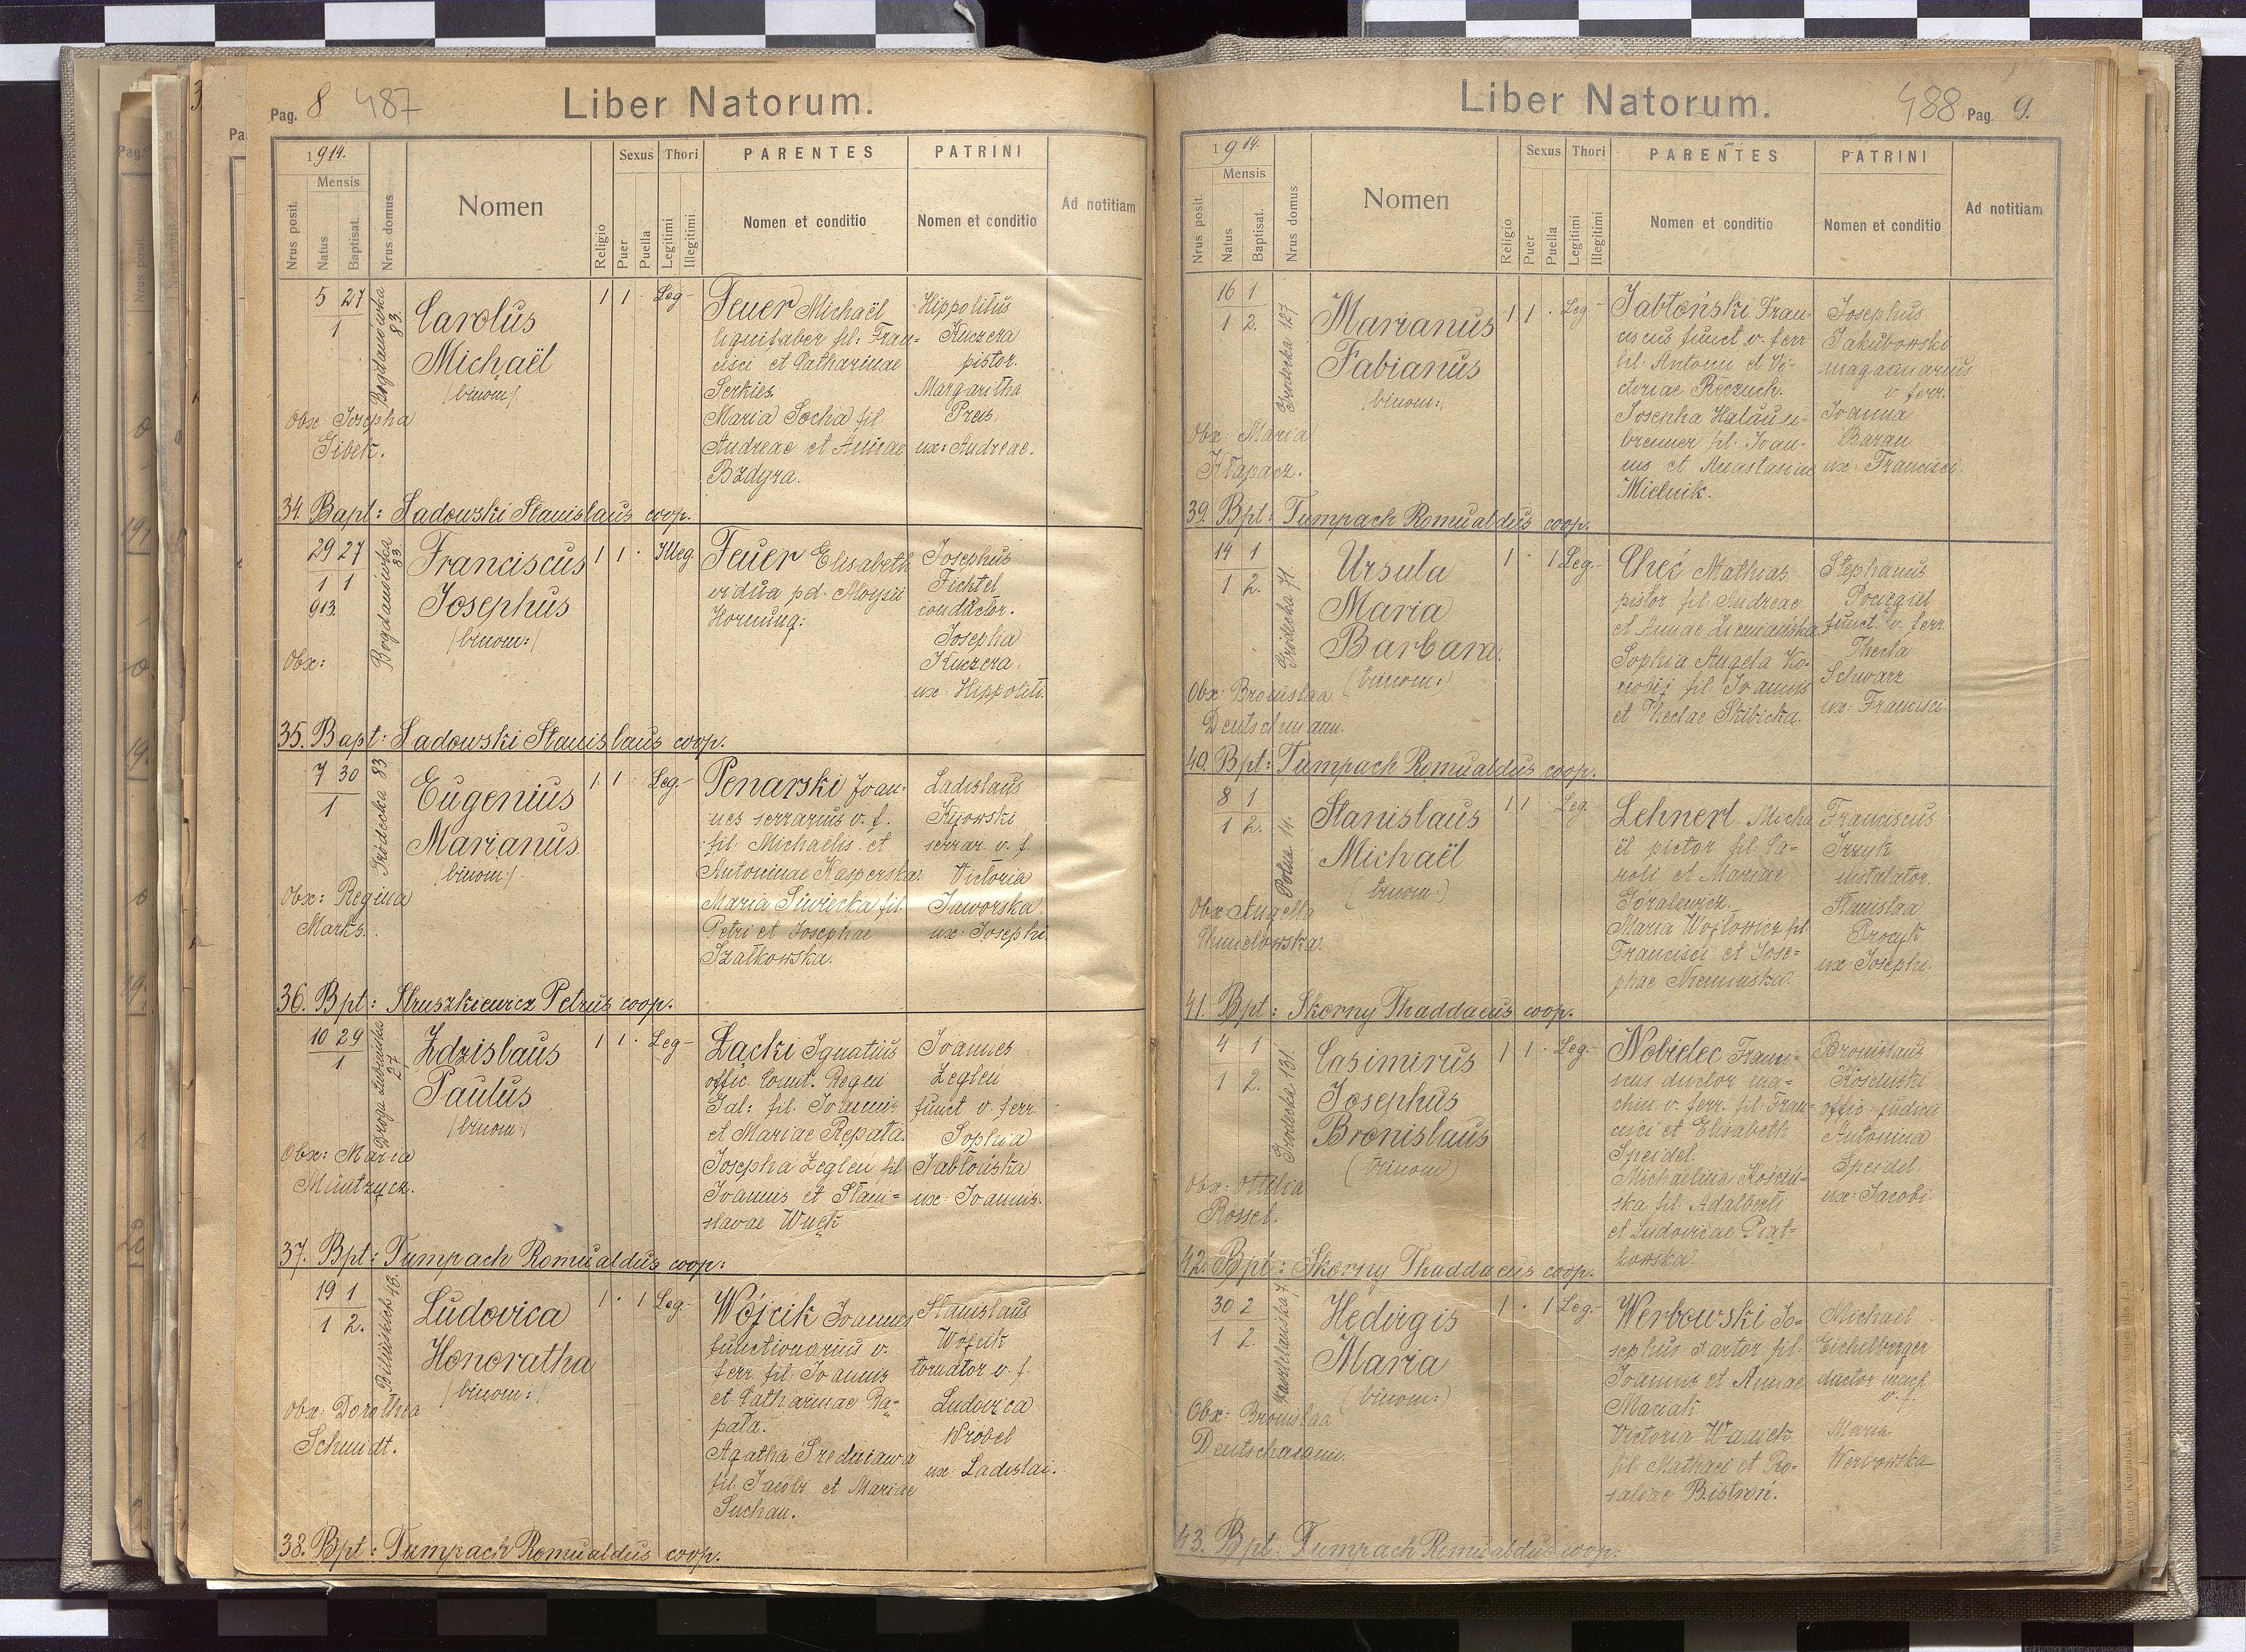 Pag. 8 487
Liber Natorum.
1914.
Mensis
Nrus posit.
Natus
Baptisat.
Nrus domus
Nomen
Religio
Sexus
Puer
Puella
Thori
Legitimi
Illegitimi
PARENTES
Nomen et conditio
PATRINI
Nomen et conditio
Ad notitiam
5 27
1
Bogdanówka
83.
Carolus
Michaël
/binom/
Obx Josepha
Gibek.
1 1 · Leg-
Feuer Michaël
lignifaber fil: Fran=
cisci et Catharinae
Serkies.
Maria Socha fil.
Andreae et Annae
Bzdyra.
Hippolitus
Kuczera
pistor.
Margaritha
Preis
ux: Andreae.
34. Bapt: Sadowski Stanislaus coop.
29 27
1 1
913.
Bogdanówka
83.
Franciscus
Josephus
/binom:/
Obx:
1 1 · Illeg
Feuer Elisabeth
vidua pd. Moysii
Hornung:
Josephus
Fichtel
conductor.
Josepha
Kuczera
ux: Hippoliti.
35. Bapt: Sadowski Stanislaus coop.
7 30
1
Gródecka 83
Eugenius
Marianus
/binom:/
Obx: Regina
Marks.
1 1 · Leg-
Penarski Joan-
nes serrarius v. f.
fil. Michaëlis et
Antoninae Kasperska.
Maria Siwiecka fil.
Petri et Josephae
Szalkowska.
Ladislaus
Kijowski
serrar v. f.
Victoria
Jaworska
ux: Josephi.
36. Bpt: Struszkiewicz Petrus coop.
10 29
1
Droga Lubieńska
27
Zdzislaus
Paulus
/binom:/
Obx: Maria
1 1 · Leg-
Lacki Ignatius
offic.
Gal: fil. Joannis
et Mariae Repata.
Josepha Zegleń fil
Joannis et Stani=
slavae Wuck
Joannes
Zegleń
funct v. ferr.
Sophia
Jabłońska
ux: Joannis.
37. Bpt: Tumpach Romualdus coop.
19 1
1 2.
Bilińskich 18.
Ludovica
Honoratha
/binom:/
Obx: Dorothea
Schmidt.
1 · 1 Leg-
Wójcik Joannes
functionarius v.
ferr. fil. Joannis
et Catharinae Ra-
pata.
Agatha Sredniawa
fil. Jacobi et Mariae
Suchan.
Stanislaus
Wójcik
tornator v. f.
Ludovica
Wrobel
ux: Ladislai.
38. Bpt: Tumpach Romualdus coop.
Liber Natorum.
488 Pag. 9.
1914.
Mensis
Nrus posit.
Natus
Baptisat.
Nrus domus
Nomen
Religio
Sexus
Puer
Puella
Thori
Legitimi
Illegitimi
PARENTES
Nomen et conditio
PATRINI
Nomen et conditio
Ad notitiam
16 1
1 2.
Grodecka 127
Marianus
Fabianus
/binom:/
Obx Maria
Kłapacz.
1 1 · Leg-
Jabłoński Fran-
ciscus funct v. ferr
fil. Antonii et Vi-
ctoriae Reczuch.
Josepha Halaun-
brenner fil. Joan-
nis et Anastasiae
Mielnik.
Josephus
Jakubowski
magazinarius
v ferr.
Joanna
Baran
ux: Francisci.
39. Bpt: Tumpach Romualdus coop.
14 1
1 2.
Grodecka 71.
Ursula
Maria
Barbara.
(trinom:)
Obx: Bronislaa
Deutschmann.
1 · 1 Leg.-
Chęć Mathias
pistor fil. Andreae
et Annae Ziemiańska
Sophia Angela Ko-
fil. Joannis
et Theclae Skibicka.
Stephanus
funct. v. ferr
Thecla
Schwarz
ux: Francisci
40. Bpt: Tumpach Romualdus coop.
8 1
1 2.
Polna 14.
Stanislaus
Michaël
(binom:)
Obx: Angella
Chmielowska.
1 1 · Leg.
Lehnert Micha
ël pictor fil. Ca-
roli et Mariae
Góralewicz.
Maria Wojtowicz fil.
Francisci et Jose=
phae Niemińska.
Franciscus
Irzyk
instalator.
Stanislaa
Procyk
ux: Josephi.
41. Bpt: Skorny Thaddaeus coop.
4 1
1 2.
Grodecka 131.
Casimirus
Josephus
Bronislaus
(trinom)
Obx: Ottilia
Rossel.
1 1 · Leg.-
Nobielec Franci-
scus ductor ma-
chin v. ferr. fil. Fran-
cisci et Elisabeth
Speidel.
Michaelina Kościń-
ska fil. Adalberti
et Ludovicae Piąt-
kowska.
Bronislaus
Kościński
offic judicii
Antonina
Speidel
ux: Jacobi.
42. Bpt: Skorny Thaddaeus coop.
30 2
1 2.
Kasztelańska 7.
Hedirgis
Maria
(binom:)
Obx: Bronislaa
Deutschmann.
1 · 1 Leg-
Werbowski Jo-
sephus sartor fil.
Joannis et Annae
Maciak
Victoria Wanick
fil. Mathaei et Ro-
saliae Bistroń.
Michaël
Eichelberger
ductor mach
v. f.
Maria
Werbowska
43. Bpt: Tumpach Romualdus coop.